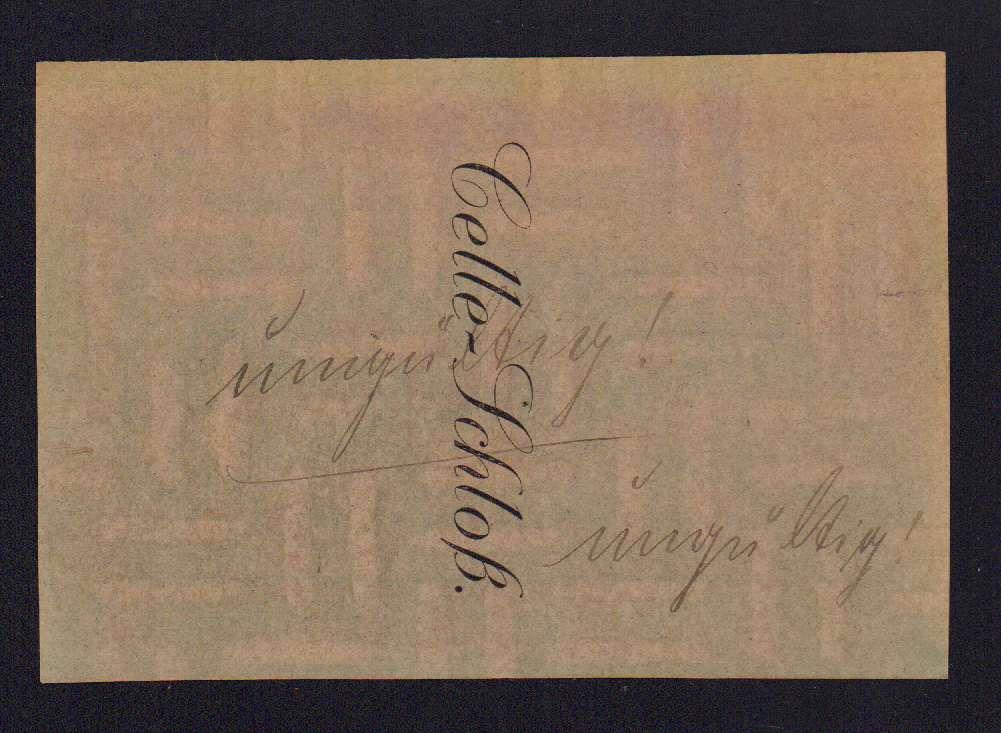 Celle-Schloß.
ungültig!
ungültig!